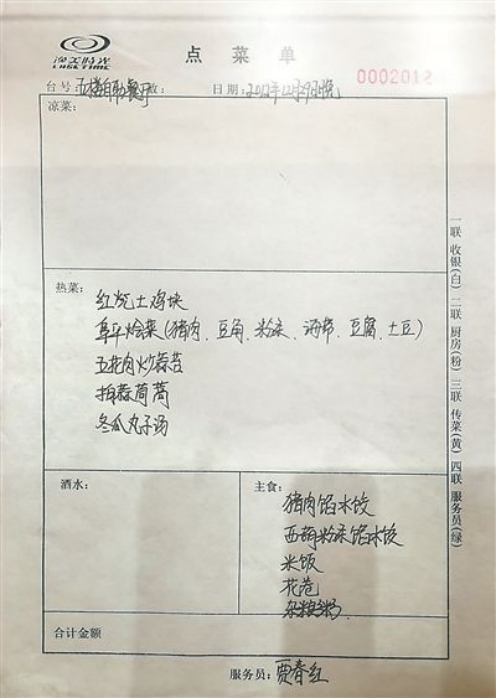 渔美时光
LUSETIME
点菜单
0002012
台号：五楼自助餐厅 数： 日期：2012年12月29日晚
凉菜：
热菜：
红烧土鸡块
阜平烩菜（猪肉、豆角、粉条、海带、豆腐、土豆）
五花肉炒蒜苔
拍蒜茼蒿
冬瓜丸子汤
酒水：
主食：
猪肉馅水饺
西葫粉条馅水饺
米饭
花卷
杂粮粥
合计金额
服务员：贾春红
一联 收银(白) 二联 厨房(粉) 三联 传菜(黄) 四联 服务员(绿)